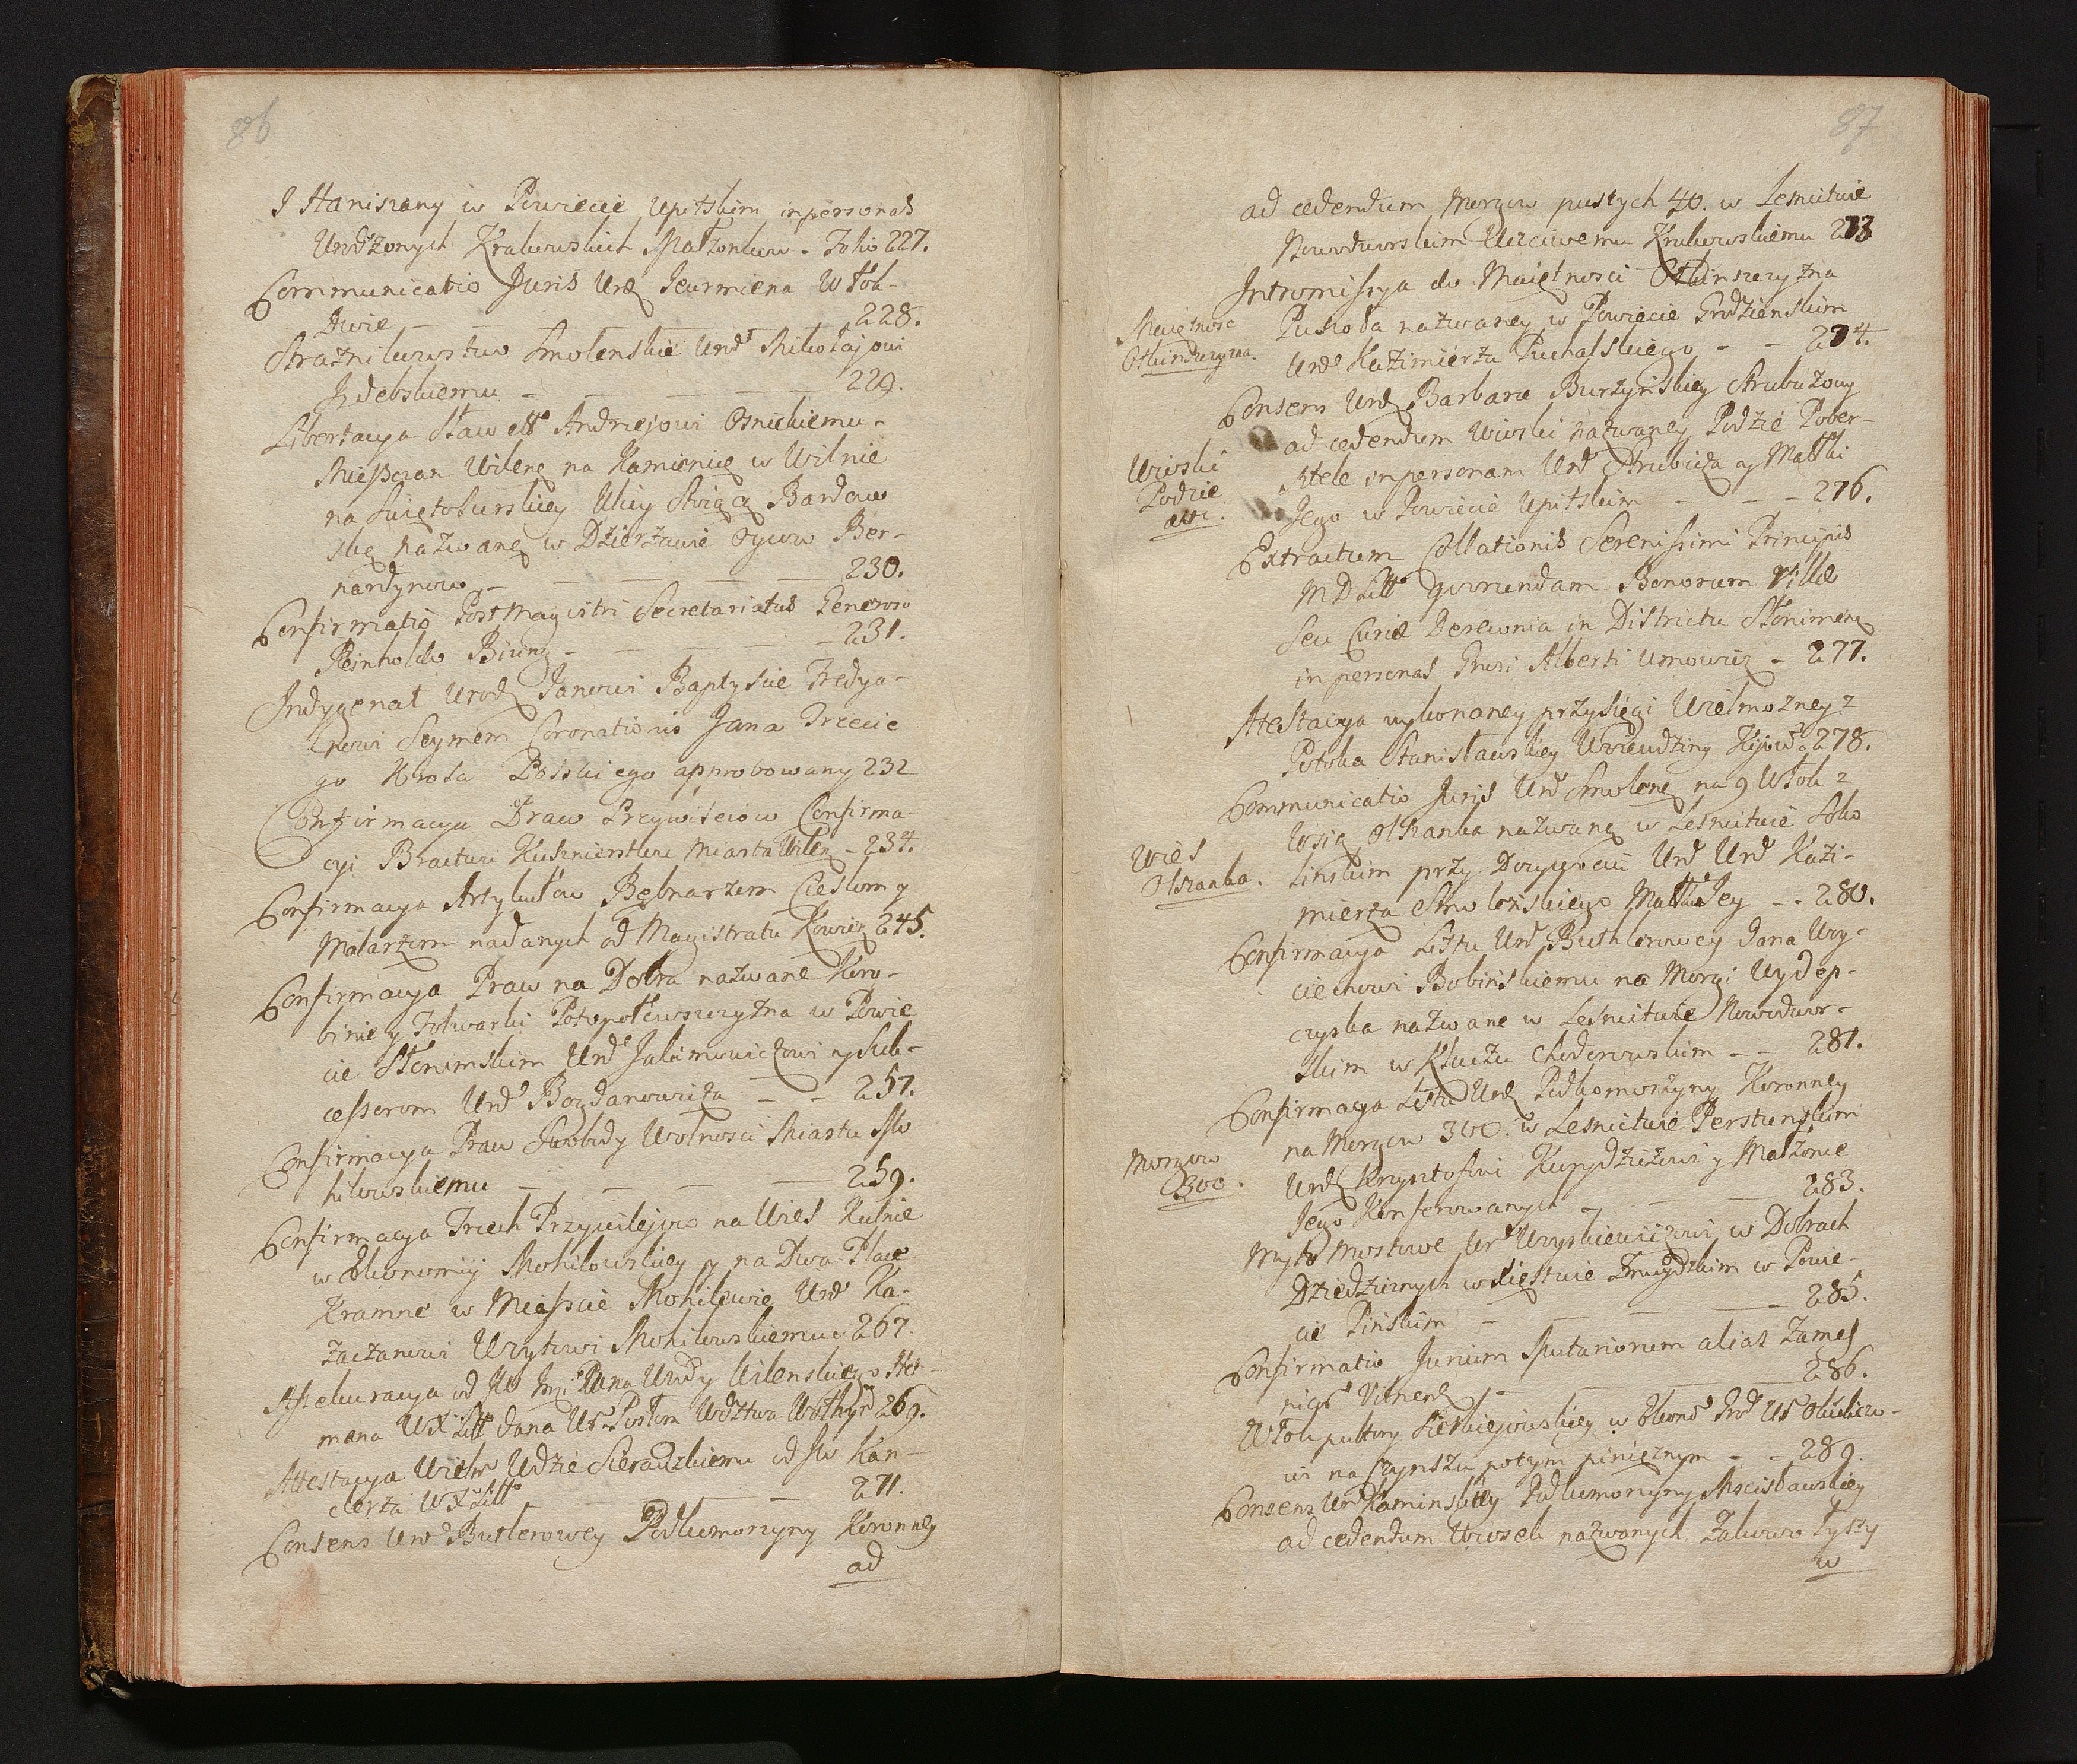 86
J Staniszany w Powiecie Upitskim in personas
Urodzonych Krakowskich Małżonkow - Folio 227.
Communicatio Juris Urdz Jeurmiena Włok-
Dwie - - - - 228.
Strażnikowstwo Smolenskie Urod Mikołajowi
Izdebskiemu - - - - 229.
Libertacya Sław ett Andrzejowi Osnickiemu-
Mieszczan Wilenę na Kamienicę w Wilnie
na Swiętojurskiey Ulicy Stoiącą Bardow
skę nazwanę w Dzierżawie Oycow Ber-
nardynow - - - - 230.
Confirmatio Post Magistri Secretariatus Generoso
Reinholdo Biung - - - - 231.
Indygenat Urodz Janowi Baptyscie Fredya-
nowi Seymem Coronationis Jana Trzecie
go Krola Polskiego approbowany 232
Confirmacya Praw Przywileiow Confirma-
cyi Bractwu Kusznierskiemu Miasta Wileń - 234.
Confirmacya Artykułow Bębnarzom Cieslom y
Malarzom nadanych od Magistratu Kowień 245.
Confirmacya Praw na Dobra nazwane Koro-
binie y Folwarki Potopołowszczyzna w Powie
cie Słonimskim Urod Jakimowiczowi y Suk-
cessorom Urod Bogdanowicza - - 257.
Confirmacya Praw Swobody Wolnosci Miastu Mo
hilowskiemu - - - - 259.
Confirmacya Trzech Przywilejow na Wies Kulnie
w Ekonomiy Mohilowskiey y na Dwa Place
Kramne w Miescie Mohilowie Urod Ka-
zaczanowi Woytowi Mohilowskiemu 267.
Assekuracya od JW Jmci Pana Wwdy Wilenskiego Het-
mana WXLitt dana Ur Posłom Wdztwa Wołhyń 269.
Attestacya Wielm Wdzie Sieradzkiemu od JW Kan-
clerza WXLitt - - - 271.
Consens Urod Butlerowey Podkomorzyny Koronney
ad
87
ad cedendum Morgow pustych 40. w Lesnictwie
Nowodworskim Uczciwemu Krukowskiemu 273
Intromissya do Maiętnosci Otkinszczyzna
Maiętnosc
Otkinszczyzna.
Puskoła nazwaney w Powiecie Grodzienskim
Urod Kazimierza Puchalskiego - - 274.
Consens Urdz Barbarze Burzynskiey Strubiczowy
ad cedendum Wioski nazwaney Podzie Pober-
Wioski
Podzie
etc.
żtele in personam Urod Strubicza y Małżki
Jego w Powiecie Upitskim - - - 276.
Extractum Collationis Serenissimi Principis
MDLitt quorundam Bonorum Villæ
Seu Curiæ Derewnia in Districtu Słonimens
in personas Grosi Alberti Umowicz - 277.
Atestacya wykonaney przysięgi Wielmożney z
Potoka Stanisławskiey Woiewodziny Kijow 278.
Communicatio Juris Urod Smolenę na 9 Włok z
Wsią Olszanka nazwaną w Lesnictwie Soko
Wies
Olszanka.
linskim przy Dożywociu Urod Urod Kazi-
mierza Smolenskiego Małżce Jey - - 280.
Confirmacya Listu Urod Buthlerowey dana Woy-
ciechowi Bobinskiemu na Morgi Wydep-
czyska nazwane w Lesnictwie Nowodwor-
skim w Kluczu Choderowskim - - 281.
Confirmacya Listu Urdz Podkomorzyny Koronney
na Morgow 300. w Lesnictwie Perstunskim
Morgow
300.
Urdz Krzysztofowi Kuradziżowi y Małżonce
Jego Konferowanych - - - 283.
Myto Mostowe Urod Woyskiewiczowi w Dobrach
Dziedzicznych w Xięstwie Żmuydzkim w Powie-
cie Pinskim - - - - 285.
Confirmatio Jurium Sputariorum alias Zamesz
nigs Vilnens - - - - 286.
Włok pułtory Kiersniejowskiey w Ekono Grod Ur Olszkiewi-
wi na Czynszu potym pinięznym - - 289.
Consens Urod Kaminskiey Podkomorzyny Mscisławskiey
ad cedendum Wiosek nazwanych Zakowo Łyszy
w